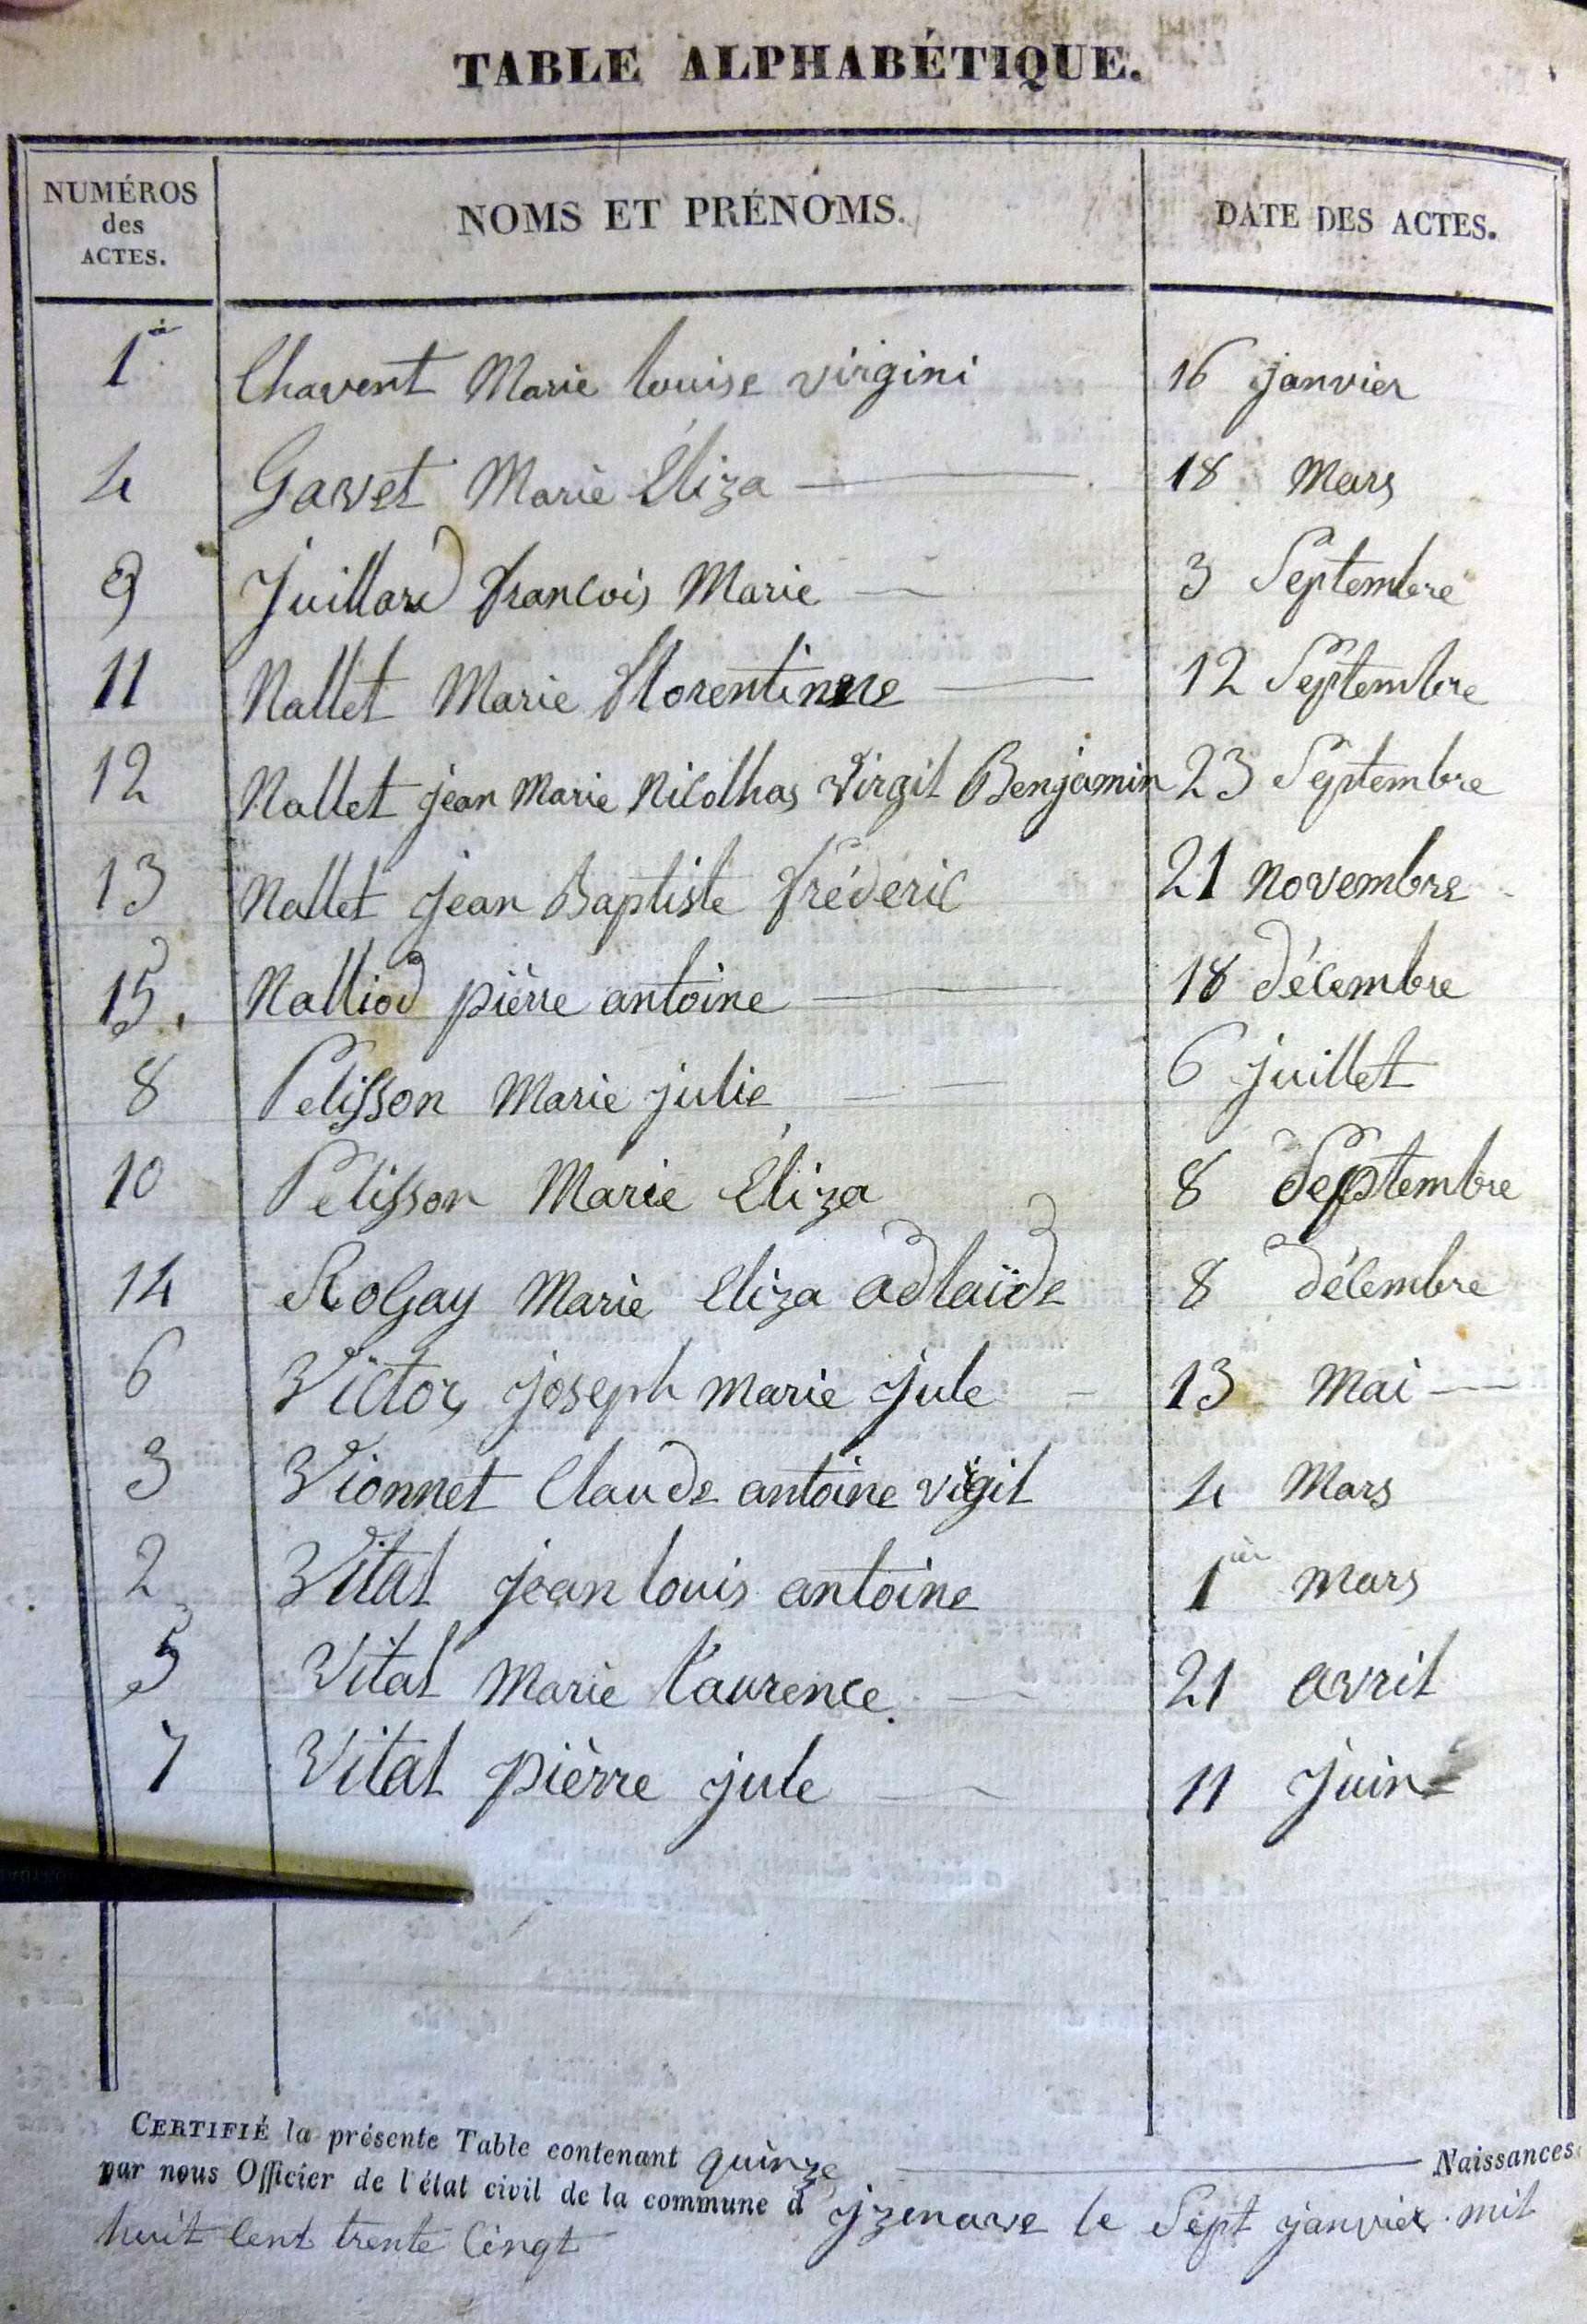 TABLE ALPHABÉTIQUE.
NUMÉROS des ACTES. NOMS ET PRÉNOMS. DATE DES ACTES.
1er Chavent Marie louise virgini 16 janvier
4 Gavet Marie Éliza 18 Mars
9 Juillard françois Marie 3 Septembre
11 Nallet Marie florentine 12 Septembre
12 Nallet jean Marie Nicolhas Virgil Benjamin 23 Septembre
13 Nallet jean Baptiste fréderic 21 novembre
15. Nalliod pièrre antoine 18 décembre
8 Pelisson Marie julie 6 juillet
10 Pelisson Marie Éliza 8 Septembre
14 RoGay Marie Eliza adlaïde 8 décembre
6 Victor, joseph marie jule 13 Mai
3 Vionnet Claude antoine vigil 4 Mars
2 Vital jean louis antoine 1er mars
5 Vital Marie Laurence. 21 avril
7 Vital pièrre jule 11 juin
CERTIFIÉ la présente Table contenant quinze Naissances
par nous Officier de l'état civil de la commune d'jzenave le Sept janvier mil
huit cent trente Cinqt